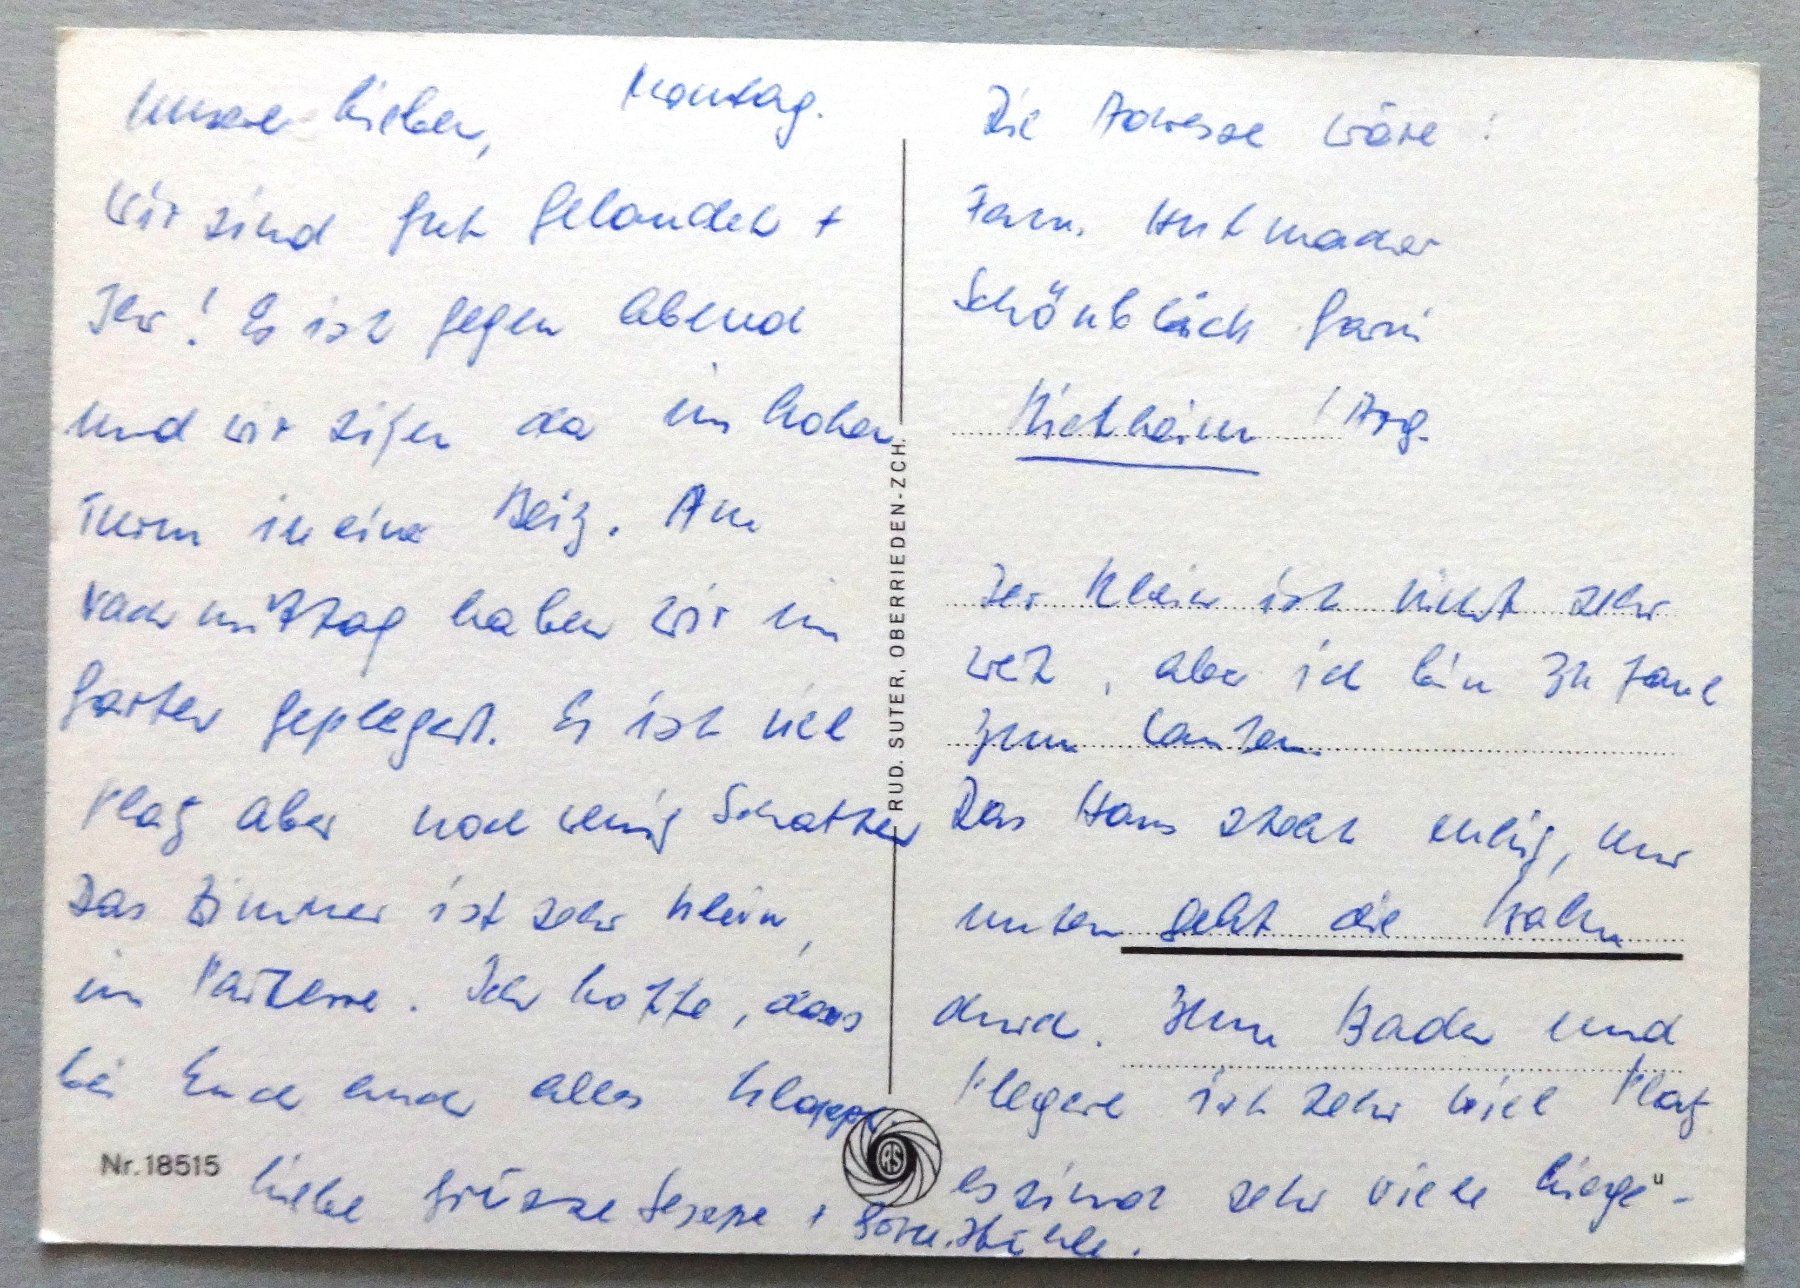 Unsere Lieben,
Montag.
Wir sind gut gelandet +
Ihr! Es ist gegen Abend
und wir sitzen da im hohen
Turm in einer Beiz. Am
Nachmittag haben wir im
Garten geplegert. Es ist viel
Platz aber noch wenig Schatten
Das Zimmer ist sehr klein,
im Parterre. Ich hoffe, dass
bei Euch auch alles klappt.
Liebe Grüsse Seppe +
Nr. 18515
RUD. SUTER, OBERRIEDEN-ZCH.
RS
Die Adresse wäre:
Fam. Hutmacher
Schönblick Garni
Rietheim / Arg.
Der Rhein ist nicht sehr
weit, aber ich bin zu faul
zum laufen.
Das Haus steht ruhig, nur
unten geht die Bahn
durch. Zum Baden und
Plegere ist sehr viel Platz
es sind sehr viele Liege-
stühle.